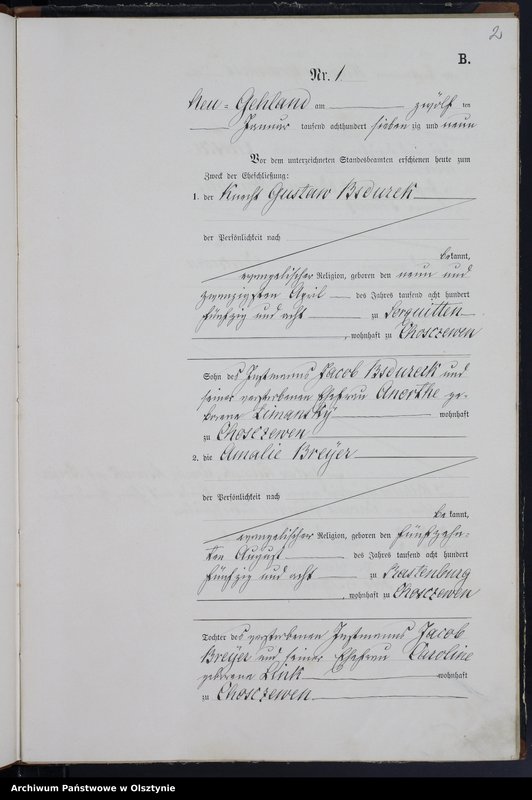 2
B.
Nr. 1
Neu-Gehland am zwölf ten
Januar tausend achthundert sieben zig und neun
Vor dem unterzeichneten Standesbeamten erschienen heute zum
Zweck der Eheschließung:
1. der Knecht Gustaw Bsdurek
der Persönlichkeit nach
bekannt,
evangelischer Religion, geboren den neun und
zwanzigsten April des Jahres tausend acht hundert
fünfzig und acht zu Sorquitten
, wohnhaft zu Chosczewen
Sohn des Instmanns Jacob Bsdureck und
seiner verstorbenen Ehefrau Anorthe ge-
borene Limansky wohnhaft
zu Chosczewen
2. die Amalie Breyer
der Persönlichkeit nach
be kannt,
evangelischer Religion, geboren den fünfzehn-
ten August des Jahres tausend acht hundert
fünfzig und acht zu Rastenburg
, wohnhaft zu Chosczewen
Tochter des verstorbenen Instmanns Jacob
Breyer und seiner Ehefrau Caroline
geborene Link wohnhaft
zu Chosczewen
Archiwum Państwowe w Olsztynie